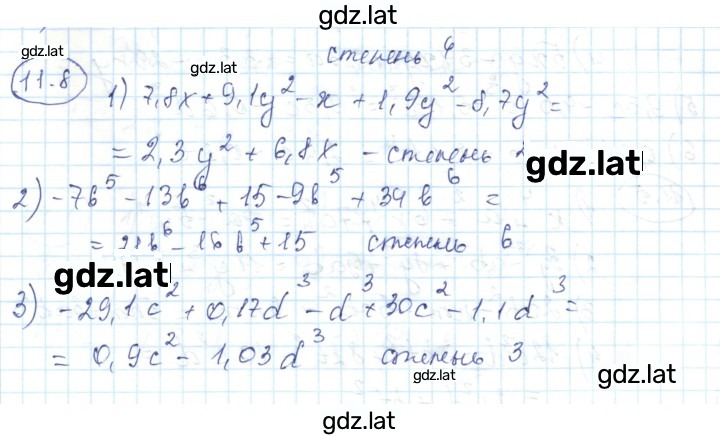 gdz.lat
gdz.lat
степень 4
11.8
gdz.lat
1) 7,8x + 9,1y² - x + 1,9y² - 8,7y² =
= 2,3y² + 6,8x - степень 2
gdz.lat
2) -7b⁵ - 13b⁶ + 15 - 9b⁵ + 34b⁶ =
= 21b⁶ - 16b⁵ + 15 степень 6
gdz.lat
3) -29,1c² + 0,17d³ - d³ + 30c² - 1,1d³ =
= 0,9c² - 1,03d³ степень 3
gdz.lat
gdz.lat
gdz.lat